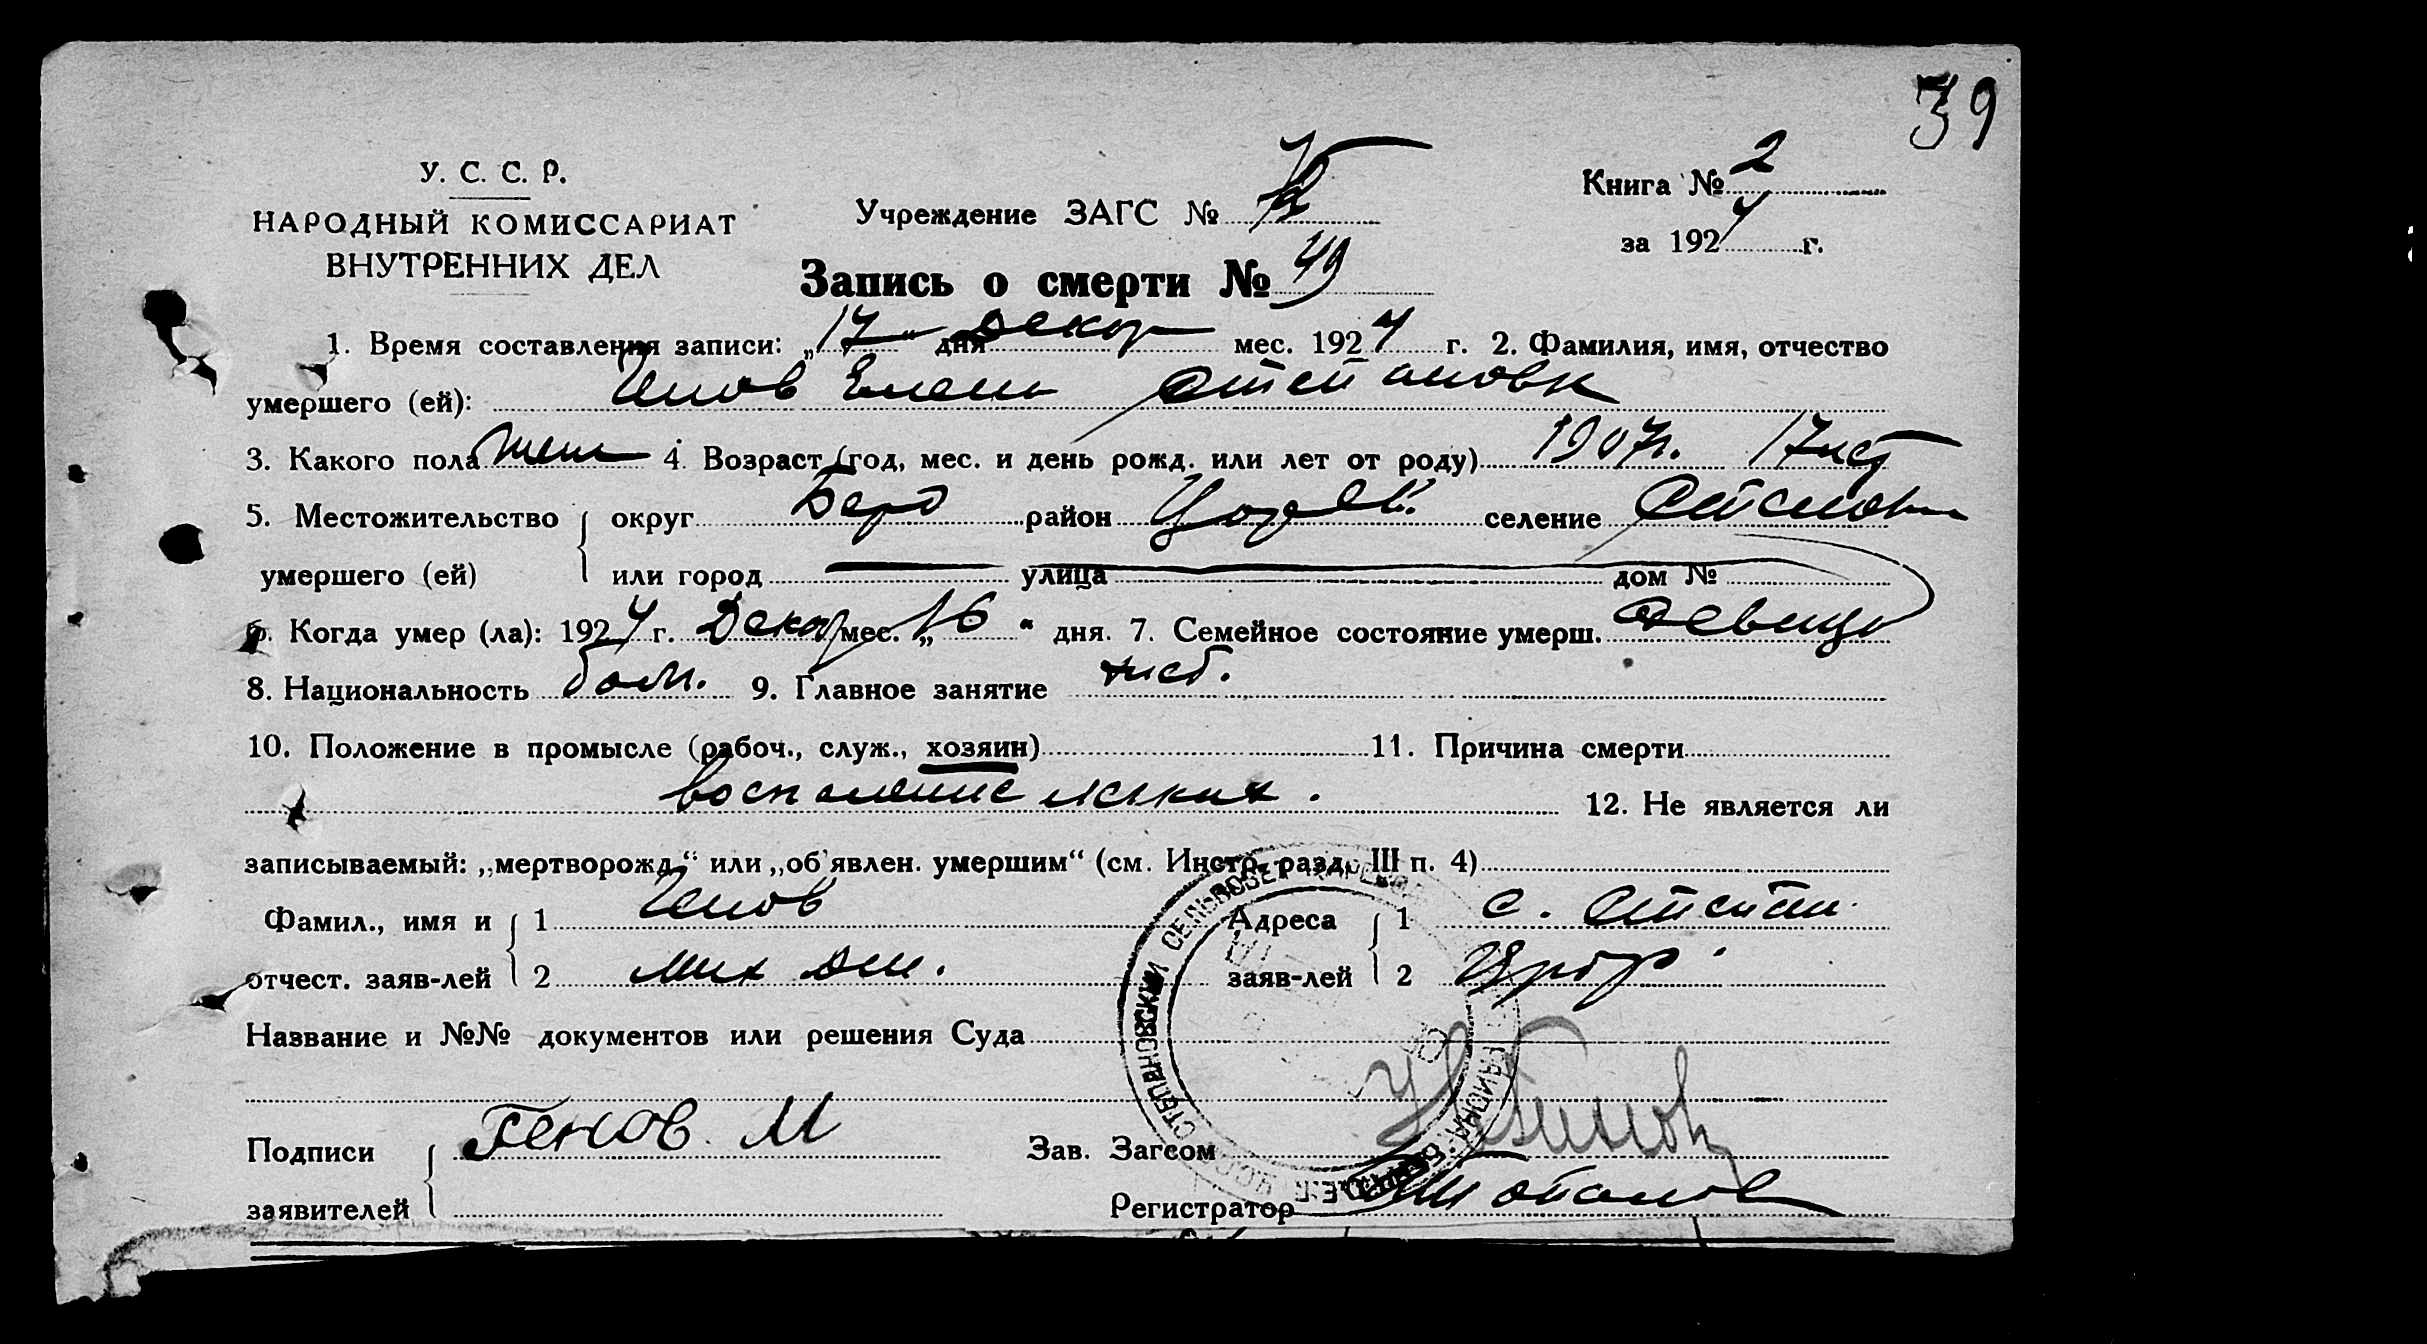 39
У. С. С. Р.
НАРОДНЫЙ КОМИССАРИАТ
ВНУТРЕННИХ ДЕЛ
Учреждение ЗАГС №
Книга № 2
за 1924 г.
Запись о смерти № 49
1. Время составления записи: „17“ дня Декабр мес. 1924 г. 2. Фамилия, имя, отчество
умершего (ей): Генов Елена Степановн
3. Какого пола жен 4. Возраст (год, мес. и день рожд. или лет от роду) 1907г. 17
5. Местожительство округ Берд район Цареп. селение Степанов
умершего (ей) или город улица дом №
6. Когда умер (ла): 1924 г. Декабр мес. „16“ дня. 7. Семейное состояние умерш. девица
8. Национальность болг. 9. Главное занятие
10. Положение в промысле (рабоч., служ., хозяин) 11. Причина смерти
воспаление легких. 12. Не является ли
записываемый: „мертворожд.“ или „об'явлен. умершим“ (см. Инстр. разд. III п. 4)
Фамил., имя и 1 Генов Адреса 1 с. Степан
отчест. заяв-лей 2 Мих заяв-лей 2
Название и №№ документов или решения Суда
Подписи Генов М Зав. Загсом
заявителей Регистратор
СТЕПАНОВСКИЙ СЕЛЬСОВЕТ РАЙОНА